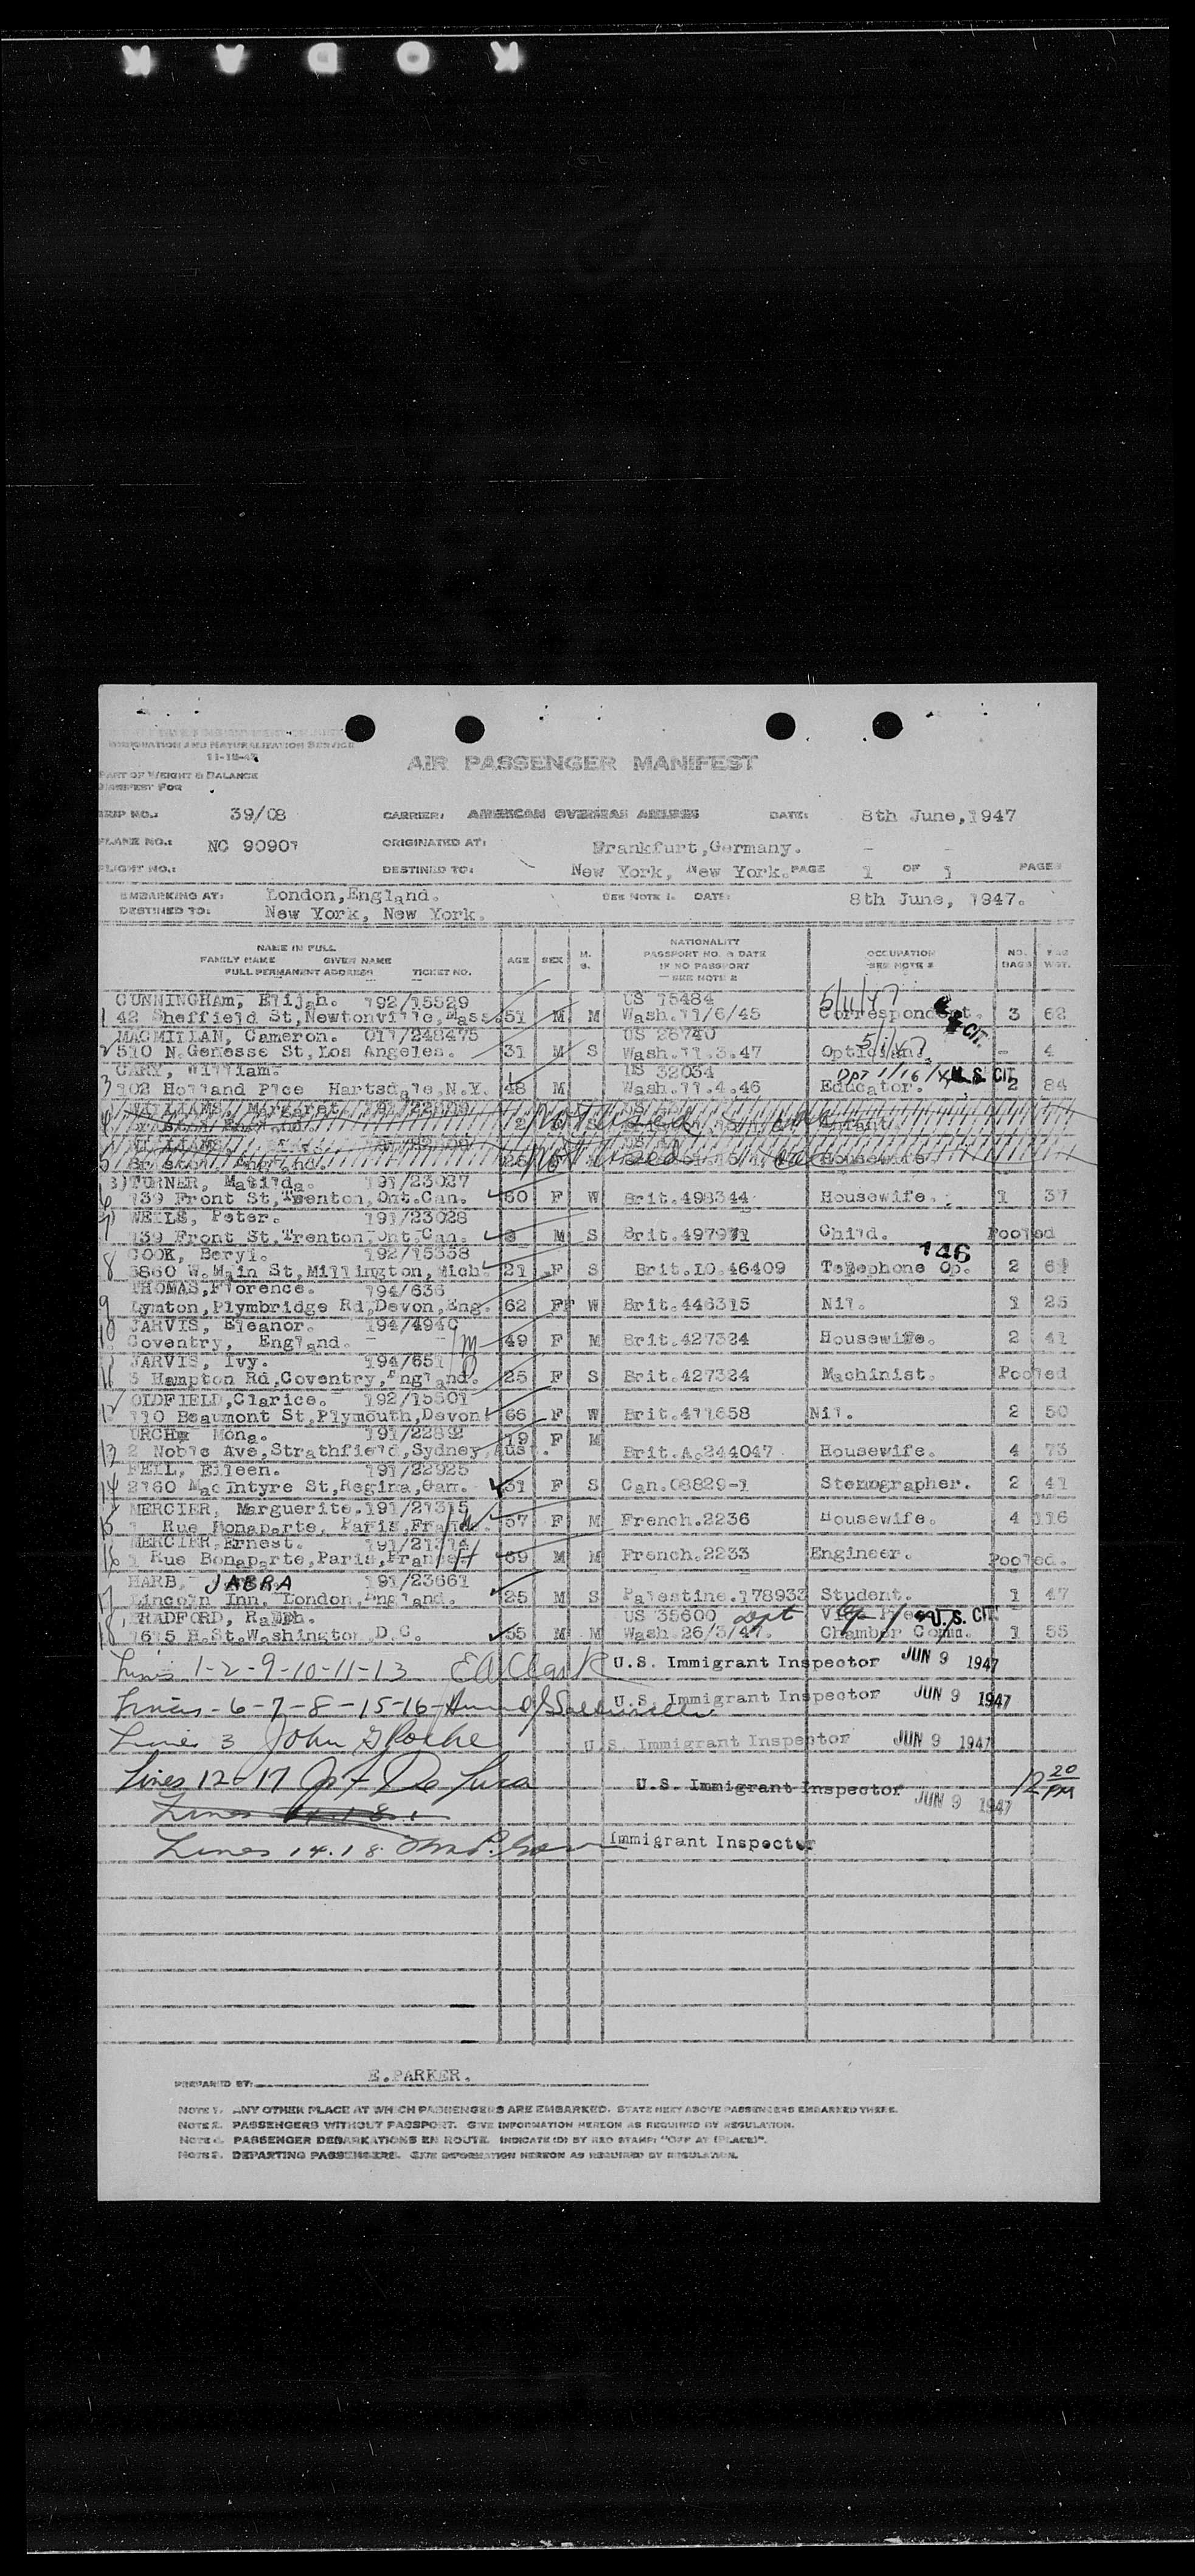 K O D A K
IMMIGRATION AND NATURALIZATION SERVICE
AIR PASSENGER MANIFEST
PART OF WEIGHT & BALANCE
MANIFEST FOR
TRIP NO.: 39/08 CARRIER: AMERICAN OVERSEAS AIRLINES DATE: 8th June, 1947
PLANE NO.: NC 90907 ORIGINATED AT: Frankfurt, Germany.
FLIGHT NO.: DESTINED TO: New York, New York. PAGE 1 OF 1 PAGES
EMBARKING AT: London, England. SEE NOTE 1. DATE: 8th June, 1947.
DESTINED TO: New York, New York.
NAME IN FULL NATIONALITY
FAMILY NAME GIVEN NAME AGE SEX M. S. PASSPORT NO. & DATE OCCUPATION NO. BAGS WGT.
FULL PERMANENT ADDRESS TICKET NO. IF NO PASSPORT SEE NOTE 2
CUNNINGHAM, Elijah. 192/15529 US 75484 5/11/47
1 42 Sheffield St, Newtonville, Mass. 51 M M Wash. 11/6/45 Correspondent. 3 62
MACMILLAN, Cameron. 011/248475 US 26740 CIT.
2 510 N. Genesse St, Los Angeles. 31 M S Wash. 11.3.47 Optician. - 4
CARY, William. US 32034
3 102 Holland Plce Hartsdale, N.Y. 48 M Wash. 11.4.46 Educator. U.S. CIT. 2 84
4 WILLIAMS, Margaret not used Infant
5 WILLIAMS, not used Housewife
TURNER, Matilda. 191/23027
6 139 Front St, Trenton, Ont. Can. 60 F W Brit. 498344 Housewife. 1 37
WELLS, Peter. 191/23028
7 139 Front St, Trenton, Ont, Can. 8 M S Brit. 497971 Child. Pooled
COOK, Beryl. 192/15338 146
8 3860 W. Main St, Millington, Mich. 21 F S Brit. LO. 46409 Telephone Op. 2 61
THOMAS, Florence. 194/636
9 Lymton, Plymbridge Rd, Devon, Eng. 62 F W Brit. 446315 Nil. 1 25
JARVIS, Eleanor. 194/4940
10 Coventry, England. M 49 F M Brit. 427324 Housewife. 2 41
JARVIS, Ivy. 194/651
11 3 Hampton Rd, Coventry, England. D 25 F S Brit. 427324 Machinist. Pooled
OLDFIELD, Clarice. 192/15501
12 110 Beaumont St, Plymouth, Devon 66 F W Brit. 411658 Nil. 2 50
Mona. 191/22892 19 F M
13 2 Noble Ave, Strathfield, Sydney, Aust. Brit. A. 244047 Housewife. 4 73
FEIL, Eileen. 191/22925
14 2160 MacIntyre St, Regina, Can. 31 F S Can. 08829-1 Stenographer. 2 41
MERCIER, Marguerite. 191/21315
15 1 Rue Bonaparte, Paris, France. W 57 F M French. 2236 Housewife. 4 116
MERCIER, Ernest. 191/21314
16 1 Rue Bonaparte, Paris, France. H 69 M M French. 2233 Engineer. Pooled.
HARB, JABRA 191/23661
17 Lincoln Inn, London, England. 25 M S Palestine. 178933 Student. 1 47
BRADFORD, Ralph. US 35600 dept Vice Pres. U.S. CIT.
18 1615 H. St. Washington. D.C. 55 M M Wash. 26/3/47. Chamber Comm. 1 55
Lines 1-2-9-10-11-13 E A Clark U.S. Immigrant Inspector JUN 9 1947
Lines - 6-7-8-15-16 U.S. Immigrant Inspector JUN 9 1947
Lines 3 John G Roche U.S. Immigrant Inspector JUN 9 1947
Lines 12-17 De Luca U.S. Immigrant Inspector JUN 9 1947 12 20 PM
Lines 14.18.
Lines 14.18. Immigrant Inspector
PREPARED BY: E. PARKER.
NOTE 1. ANY OTHER PLACE AT WHICH PASSENGERS ARE EMBARKED. STATE NEXT ABOVE PASSENGERS EMBARKED THERE.
NOTE 2. PASSENGERS WITHOUT PASSPORT. GIVE INFORMATION HEREON AS REQUIRED BY REGULATION.
NOTE 4. PASSENGER DEBARKATIONS EN ROUTE. INDICATE (D) BY RED STAMP: "OFF AT (PLACE)".
NOTE 3. DEPARTING PASSENGERS. GIVE INFORMATION HEREON AS REQUIRED BY REGULATION.